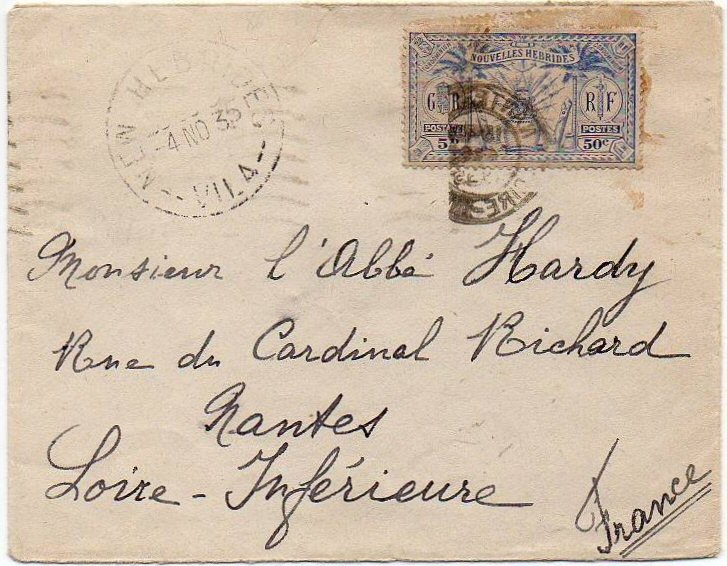 NEW HEBRIDES
4 NO 35
VILA
NOUVELLES HEBRIDES
G R
R F
POSTES
5ᵈ
50ᶜ
Monsieur l'Abbé Hardy
Rue du Cardinal Richard
Nantes
Loire-Inférieure
France